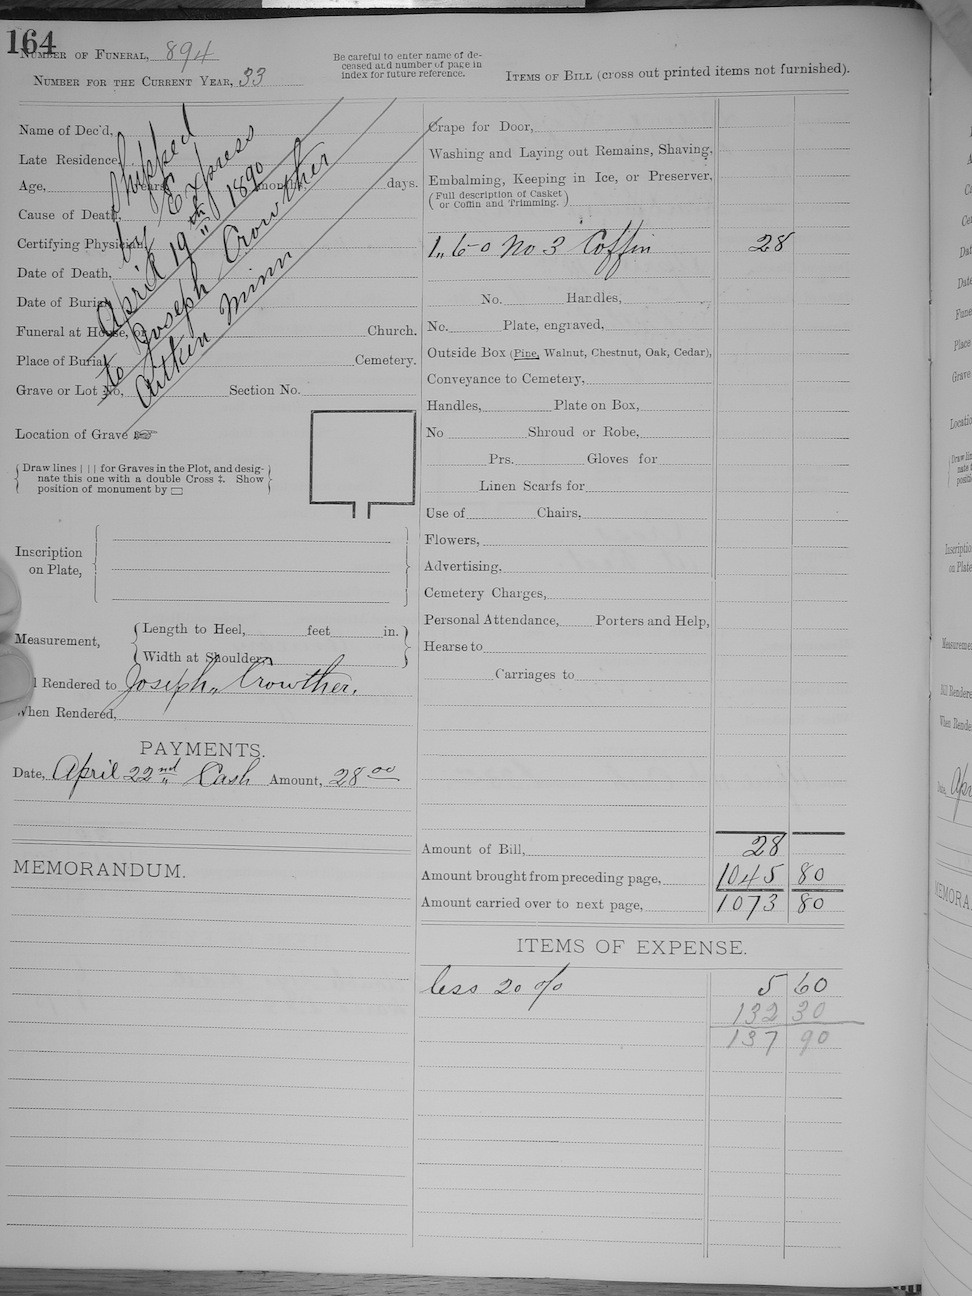 164
NUMBER OF FUNERAL, 894
NUMBER FOR THE CURRENT YEAR, 33
Be careful to enter name of de-
ceased and number of page in
index for future reference.
ITEMS OF BILL (cross out printed items not furnished).
Name of Dec'd,
Late Residence,
Age, years, months, days.
Cause of Death,
Certifying Physician,
Date of Death,
Date of Burial,
Funeral at House, or Church.
Place of Burial, Cemetery.
Grave or Lot No, Section No.
Shipped
by Express
April 19th 1890
to Joseph Crowther
Aitkin Minn
Location of Grave ☞
Draw lines | | | for Graves in the Plot, and desig-
nate this one with a double Cross ‡. Show
position of monument by ▭
Inscription
on Plate,
Measurement,
Length to Heel, feet in.
Width at Shoulders
l Rendered to Joseph Crowther.
When Rendered,
PAYMENTS.
Date, April 22nd Cash Amount, 28 00
MEMORANDUM.
Crape for Door,
Washing and Laying out Remains, Shaving,
Embalming, Keeping in Ice, or Preserver,
(Full description of Casket
or Coffin and Trimming.)
1,, 6-0 No 3 Coffin 28
No. Handles,
No. Plate, engraved,
Outside Box (Pine, Walnut, Chestnut, Oak, Cedar),
Conveyance to Cemetery,
Handles, Plate on Box,
No Shroud or Robe,
Prs. Gloves for
Linen Scarfs for
Use of Chairs,
Flowers,
Advertising,
Cemetery Charges,
Personal Attendance, Porters and Help,
Hearse to
Carriages to
Amount of Bill, 28
Amount brought from preceding page, 1045 80
Amount carried over to next page, 1073 80
ITEMS OF EXPENSE.
less 20 % 5 60
132 30
137 90